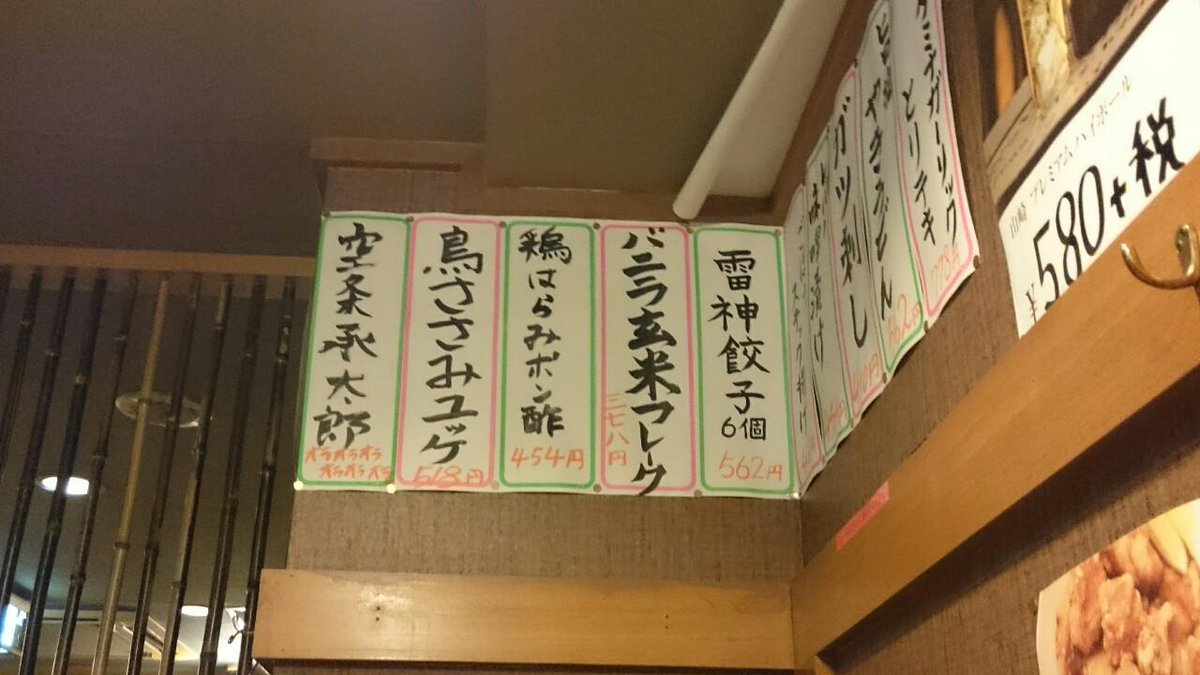 山崎 プレミアムハイボール
¥580+税
タミナガーリック
とりテキ
やきうどん
ガツ刺し
雷神餃子
6個
562円
バニラ玄米フレーク
三七八円
鶏はらみポン酢
454円
鳥ささみユッケ
518円
空条承太郎
オラオラオラ
オラオラオラ